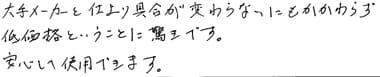 大手メーカーと仕上り具合が変わらないにもかかわらず
低価格ということに驚きです。
安心して使用できます。